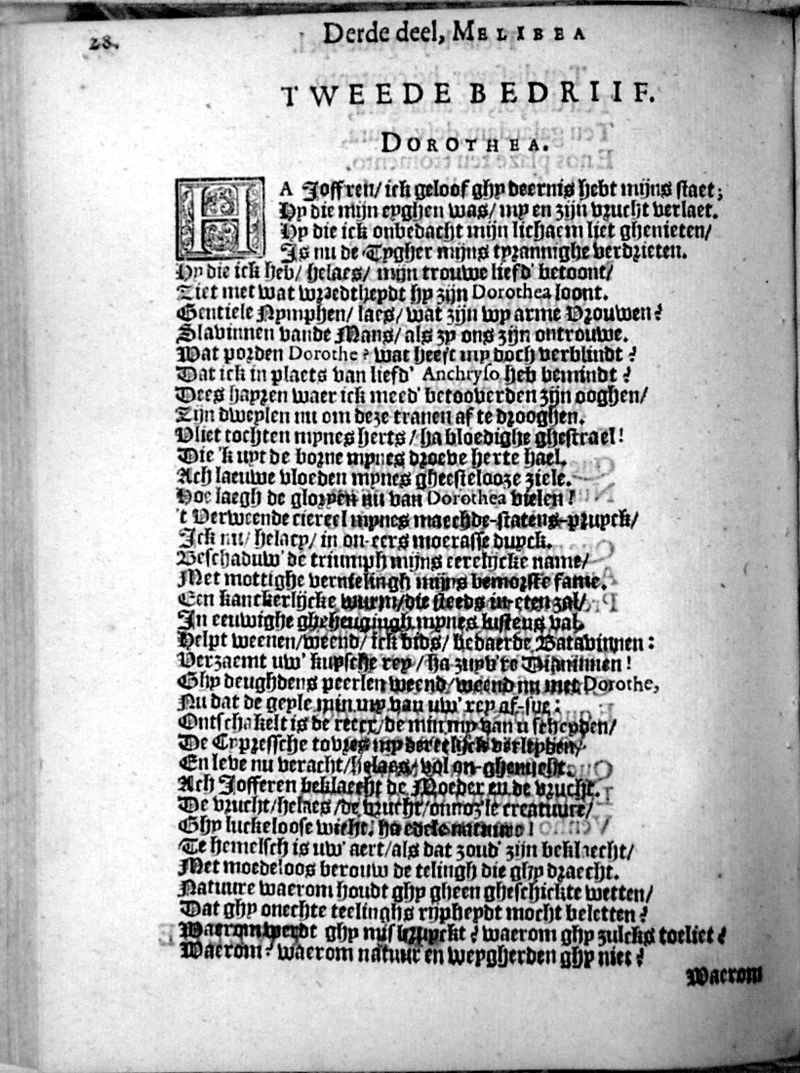 28.
Derde deel, MELIBEA
TWEEDE BEDRIIF.
DOROTHEA.
HA Joffren/ ick geloof ghy deernis hebt mijns staet;
Hy die mijn eyghen was/ my en zijn vrucht verlaet.
Hy die ick onbedacht mijn lichaem liet ghenieten/
Is nu de Tygher mijns tyrannighe verdrieten.
Hy die ick heb/ helaes/ mijn trouwe liefd' betoont/
Ziet met wat wreedtheydt hy zijn Dorothea loont.
Gentiele Nymphen/ laes/ wat zijn wy arme Vrouwen?
Slavinnen vande Mans/ als zy ons zijn ontrouwe.
Wat porden Dorothe? wat heeft my doch verblindt?
Dat ick in plaets van liefd' Anchryso heb bemindt?
Dees hayren waer ick meed' betooverden zijn ooghen/
Zijn dweylen nu om deze tranen af te drooghen.
Vliet tochten mynes herts/ ha bloedighe ghestrael!
Die 'k uyt de borne mynes droeve herte hael.
Ach laeuwe vloeden mynes gheestelooze ziele.
Hoe laegh de gloryen nu van Dorothea vielen!
't Verweende ciereel mynes maechde-statens-pruyck/
Ick nu/ helacy/ in on-eers moerasse duyck.
Beschaduw' de triumph mijns eerelijcke name/
Met mottighe vernielingh mijns bemorste fame.
Een kanckerlijcke wurm/ die steeds in-eten zal/
In eeuwighe gheheugingh mynes lustens val.
Helpt weenen/ weend/ ick bids/ bedaerde Batavinnen:
Verzaemt uw' kuysche rey/ ha zuyv're Dianinnen!
Ghy deughdens peerlen weend/ weend nu met Dorothe,
Nu dat de geyle min my van uw' rey af-sne:
Ontschakelt is de reex/ de min my van u scheyden/
De Cypressche tovres my dertelijck verleyden/
En leve nu veracht/ helaes/ vol on-ghenucht.
Ach Jofferen beklaecht de Moeder en de vrucht.
De vrucht/ helaes/ de vrucht/ onnoz'le creatuure/
Ghy luckeloose wicht/ ha edele natuure!
Te hemelsch is uw' aert/ als dat zoud' zijn beklaecht/
Met moedeloos berouw de telingh die ghy draecht.
Natuure waerom houdt ghy gheen gheschickte wetten/
Dat ghy onechte teelinghs rypheydt mocht beletten?
Waerom werdt ghy mis bruyckt? waerom ghy zulcks toeliet?
Waerom? waerom natuur en weygherden ghy niet?
Waerom